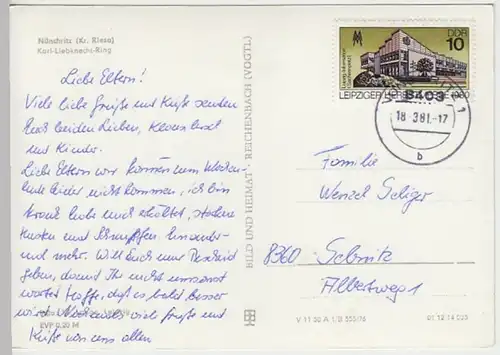 Nünchritz (Kr. Riesa)
Karl-Liebknecht-Ring
Liebe Eltern!
Viele liebe Grüße und Küße senden
Euch beiden Lieben,
und Kinder.
Liebe Eltern wir können zum Wochen-
ende leider nicht kommen, ich bin
krank habe mich erkältet, starken
Husten und Schnupfen
und mehr. Will Euch nur Bescheid
geben, damit Ihr nicht umsonst
wartet. Hoffe, daß es bald besser
wird. Nochmals viele Grüße und
EVP 0,20 M
Küße von uns allen
BILD UND HEIMAT · REICHENBACH (VOGTL)
DDR
10
LEIPZIGER 1980
8403
1
18.-3.81.-17
b
Familie
Wenzel Seliger
8360 Sebnitz
Albertweg 1
V 11 50 A 1/B 555/76
01 12 14 033